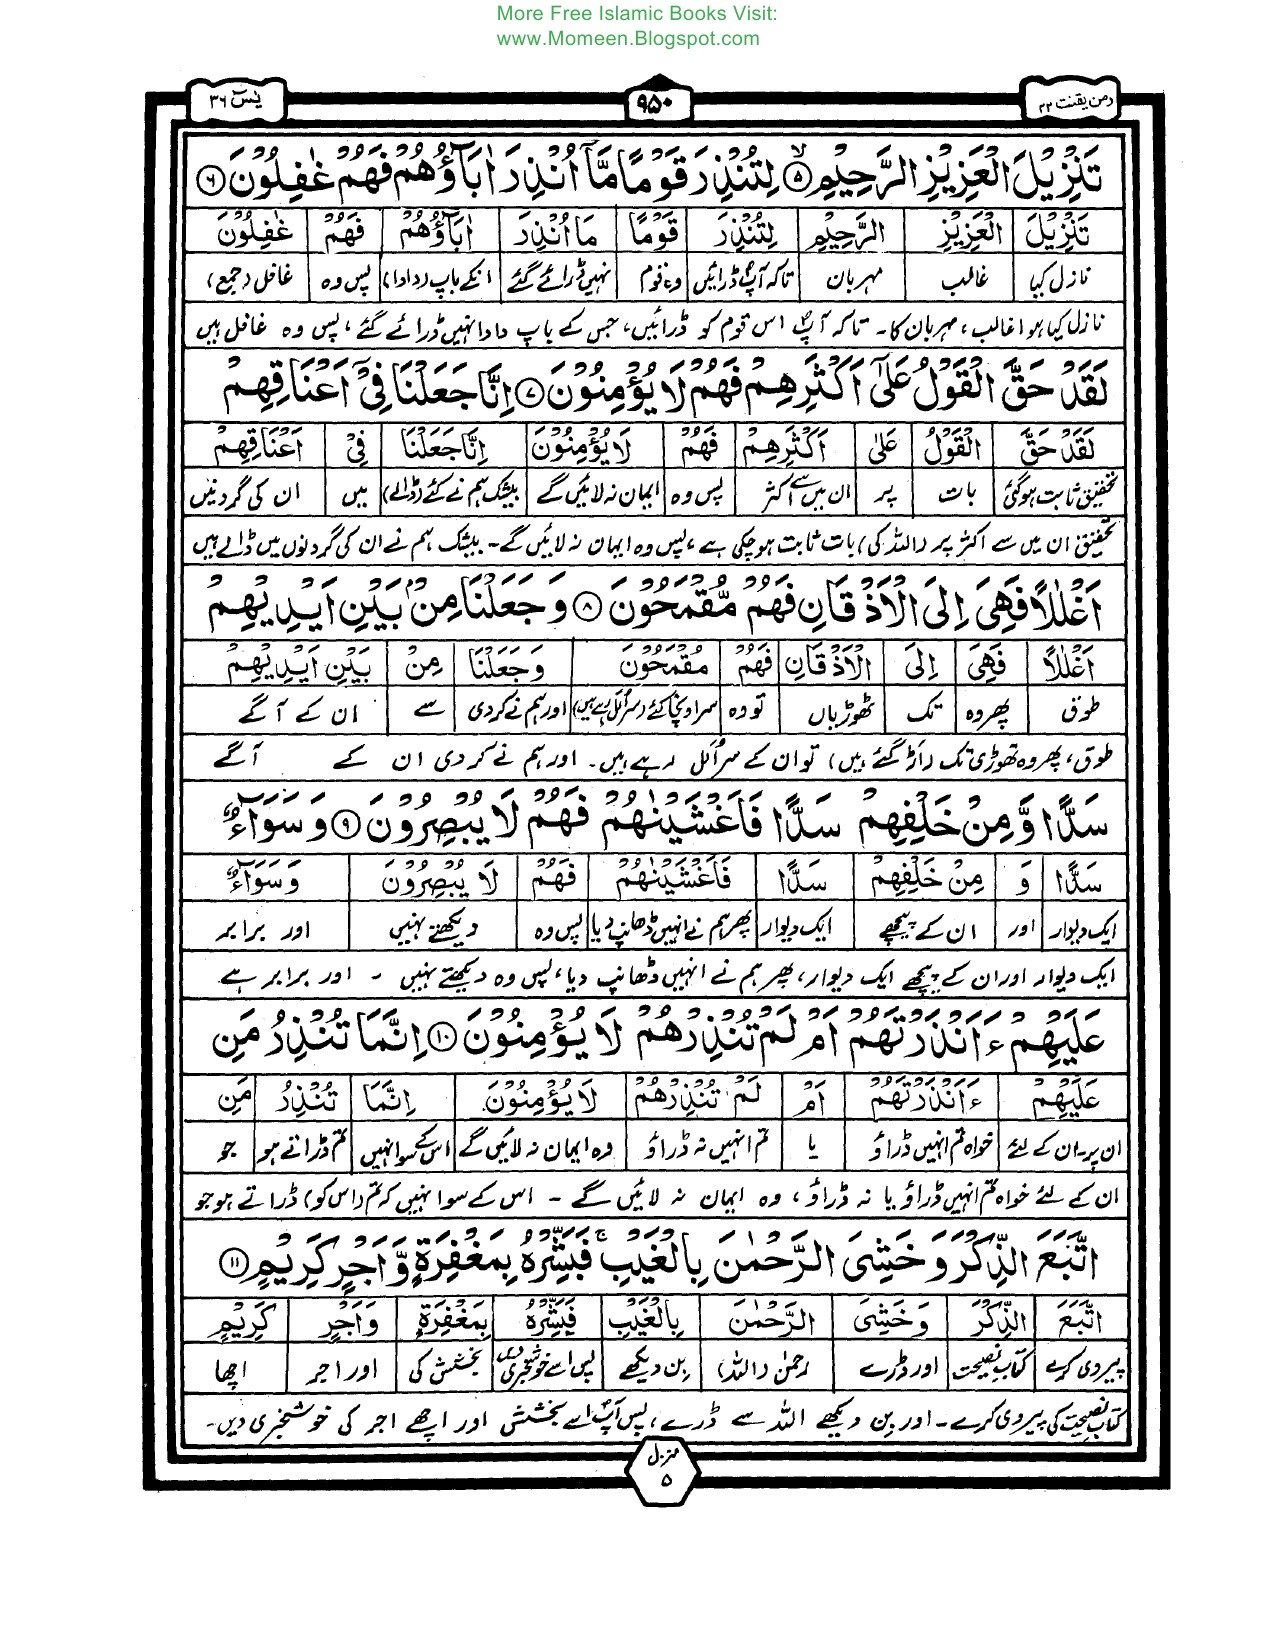 More Free Islamic Books Visit:
www.Momeen.Blogspot.com
ومن یقنت ۲۲
۹۵۰
یٰسٓ ۳۶
تَنْزِيْلَ الْعَزِيْزِ الرَّحِيْمِ ۙ﴿۵﴾ لِتُنْذِرَ قَوْمًا مَّآ اُنْذِرَ اٰبَآؤُهُمْ فَهُمْ غٰفِلُوْنَ ﴿۶﴾
تَنْزِيْلَ الْعَزِيْزِ الرَّحِيْمِ لِتُنْذِرَ قَوْمًا مَا اُنْذِرَ اٰبَآؤُهُمْ فَهُمْ غٰفِلُوْنَ
نازل کیا غالب مہربان تاکہ آپؐ ڈرائیں وہ قوم نہیں ڈرائے گئے انکے باپ (دادا) پس وہ غافل (جمع)
نازل کیا ہوا غالب، مہربان کا۔ تاکہ آپؐ اس قوم کو ڈرائیں، جس کے باپ دادا نہیں ڈرائے گئے، پس وہ غافل ہیں
لَقَدْ حَقَّ الْقَوْلُ عَلٰٓى اَكْثَرِهِمْ فَهُمْ لَا يُؤْمِنُوْنَ ﴿۷﴾ اِنَّا جَعَلْنَا فِيْٓ اَعْنَاقِهِمْ
لَقَدْ حَقَّ الْقَوْلُ عَلٰى اَكْثَرِهِمْ فَهُمْ لَا يُؤْمِنُوْنَ اِنَّا جَعَلْنَا فِيْ اَعْنَاقِهِمْ
تحقیق ثابت ہوگئی بات پر ان میں سے اکثر پس وہ ایمان نہ لائیں گے بیشک ہم نے کئے (ڈالے) میں ان کی گردنیں
تحقیق ان میں سے اکثر پر (اللہ کی) بات ثابت ہوچکی ہے، پس وہ ایمان نہ لائیں گے۔ بیشک ہم نے ان کی گردنوں میں ڈالے ہیں
اَغْلٰلًا فَهِيَ اِلَى الْاَذْقَانِ فَهُمْ مُّقْمَحُوْنَ ﴿۸﴾ وَجَعَلْنَا مِنْۢ بَيْنِ اَيْدِيْهِمْ
اَغْلٰلًا فَهِيَ اِلَى الْاَذْقَانِ فَهُمْ مُقْمَحُوْنَ وَجَعَلْنَا مِنْ بَيْنِ اَيْدِيْهِمْ
طوق پھر وہ تک ٹھوڑیاں تو وہ سر اونچا کئے (سر اُلل رہے ہیں) اور ہم نے کردی سے ان کے آگے
طوق، پھر وہ ٹھوڑی تک (اڑ گئے ہیں) تو ان کے سر اُلل رہے ہیں۔ اور ہم نے کردی ان کے آگے
سَدًّا وَّمِنْ خَلْفِهِمْ سَدًّا فَاَغْشَيْنٰهُمْ فَهُمْ لَا يُبْصِرُوْنَ ﴿۹﴾ وَسَوَآءٌ
سَدًّا وَ مِنْ خَلْفِهِمْ سَدًّا فَاَغْشَيْنٰهُمْ فَهُمْ لَا يُبْصِرُوْنَ وَسَوَآءٌ
ایک دیوار اور ان کے پیچھے ایک دیوار پھر ہم نے انہیں ڈھانپ دیا پس وہ دیکھتے نہیں اور برابر
ایک دیوار اور ان کے پیچھے ایک دیوار، پھر ہم نے انہیں ڈھانپ دیا، پس وہ دیکھتے نہیں ۔ اور برابر ہے
عَلَيْهِمْ ءَاَنْذَرْتَهُمْ اَمْ لَمْ تُنْذِرْهُمْ لَا يُؤْمِنُوْنَ ﴿۱۰﴾ اِنَّمَا تُنْذِرُ مَنِ
عَلَيْهِمْ ءَاَنْذَرْتَهُمْ اَمْ لَمْ تُنْذِرْهُمْ لَا يُؤْمِنُوْنَ اِنَّمَا تُنْذِرُ مَنِ
ان پر۔ ان کے لئے خواہ تم انہیں ڈراؤ یا تم انہیں نہ ڈراؤ وہ ایمان نہ لائیں گے اس کے سوا نہیں تم ڈراتے ہو جو
ان کے لئے خواہ تم انہیں ڈراؤ یا نہ ڈراؤ، وہ ایمان نہ لائیں گے ۔ اس کے سوا نہیں کہ تم (اس کو) ڈراتے ہو جو
اتَّبَعَ الذِّكْرَ وَخَشِيَ الرَّحْمٰنَ بِالْغَيْبِ ۚ فَبَشِّرْهُ بِمَغْفِرَةٍ وَّاَجْرٍ كَرِيْمٍ ﴿۱۱﴾
اتَّبَعَ الذِّكْرَ وَخَشِيَ الرَّحْمٰنَ بِالْغَيْبِ فَبَشِّرْهُ بِمَغْفِرَةٍ وَاَجْرٍ كَرِيْمٍ
پیروی کرے کتاب نصیحت اور ڈرے رحمٰن (اللہ) بن دیکھے پس اسے خوشخبری دیں بخشش کی اور اجر اچھا
کتاب نصیحت کی پیروی کرے۔ اور بن دیکھے اللہ سے ڈرے، پس آپؐ اسے بخشش اور اچھے اجر کی خوشخبری دیں۔
منزل
۵